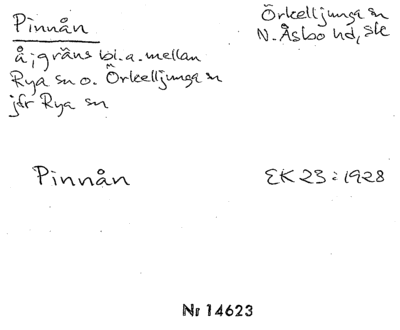 Pinnån
Örkelljunga sn
N. Åsbo hd, sk
å; gräns bl. a. mellan
Rya sn o. Örkelljunga sn
jfr Rya sn
Pinnån
EK 23: 1928
Nr 14623